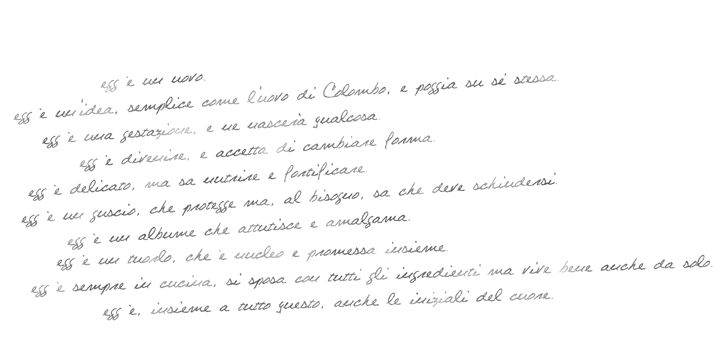 egg è un uovo.
egg è un'idea, semplice come l'uovo di Colombo, e poggia su sé stessa.
egg è una gestazione, e ne nascerà qualcosa.
egg è divenire, e accetta di cambiare forma.
egg è delicato, ma sa nutrire e fortificare.
egg è un guscio, che protegge ma, al bisogno, sa che deve schiudersi.
egg è un albume che attutisce e amalgama.
egg è un tuorlo, che è nucleo e promessa insieme.
egg è sempre in cucina, si sposa con tutti gli ingredienti ma vive bene anche da solo.
egg è, insieme a tutto questo, anche le iniziali del cuore.